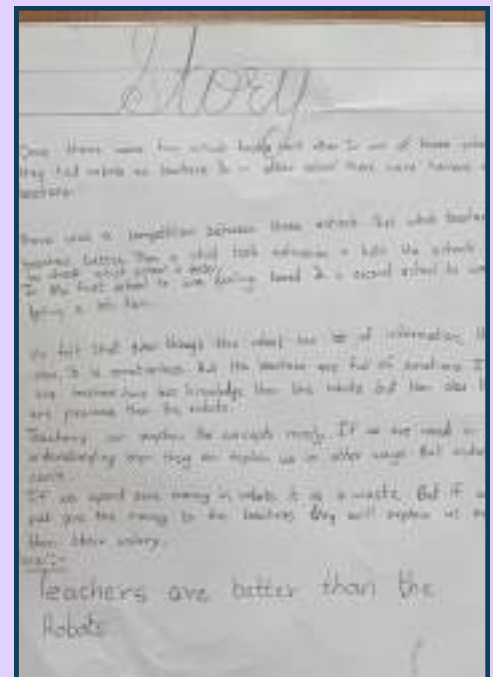 Story
Once there were two school beside each other In one of those school
they had robots as teachers In other school there were humans as
teachers.
There was a competition between these schools that which teacher
teaches better Then a child took admission in both the schools
to check which school is better
In the first school he was feeling bored In second school he was
having a lot fun.
He felt that even though the robot has lot of information, It
also, It is emotionless But the teachers are full of emotions If
the teachers have less knowledge than the robots but then also they
are precious than the robots.
Teachers can explain the concepts nicely. If we are weak in
understanding even they can explain us in other ways But robots
can't
If we spend our money in robots it is a waste. But if we
just give the money to the teachers they will explain us more
than their salary.
Teachers are better than the
Robots